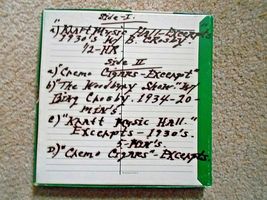 Side-I.
a) Kraft Music Hall-Excerpts
1930's W/ B. Crosby.
1/2-HR
Side II
a) "Chemo Cigars-Excerpt"
b) "The Woodbury Show" W/
Bing Crosby. 1934-20-
MIN's
c) "Kraft Music Hall."
Excerpts-1930's.
5-MIN's.
D) "Chemo Cigars"-Excerpts.